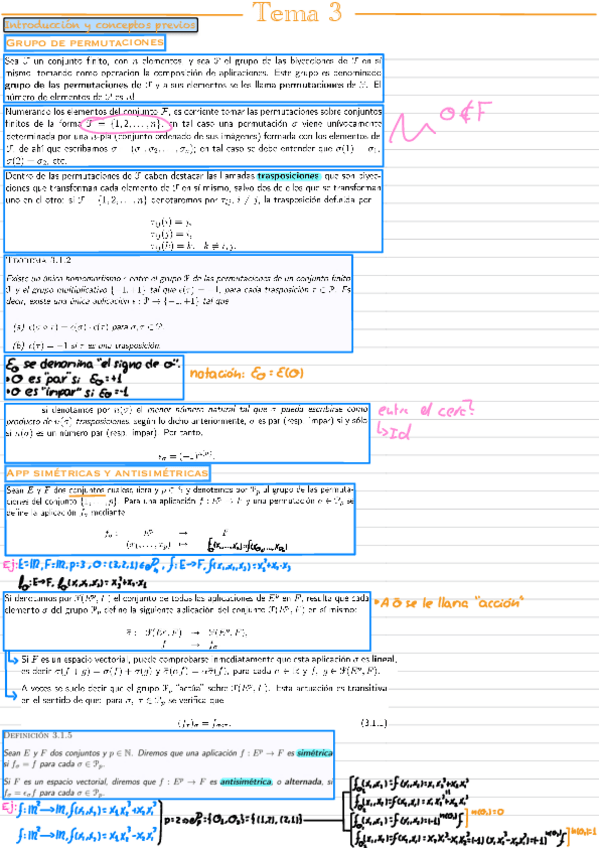 Tema 3
Introducción y conceptos previos
GRUPO DE PERMUTACIONES
Sea ℱ un conjunto finito, con n elementos y sea 𝒫 el grupo de las biyecciones de ℱ en sí
mismo tomando como operación la composición de aplicaciones. Este grupo es denominado
grupo de las permutaciones de ℱ y a sus elementos se les llama permutaciones de ℱ. El
número de elementos de 𝒫 es n!
Numerando los elementos del conjunto ℱ, es corriente tomar las permutaciones sobre conjuntos
finitos de la forma ℱ = {1,2,...,n}, en tal caso una permutación σ viene unívocamente
determinada por una n-pla (conjunto ordenado de sus imágenes) formada con los elementos de
ℱ, de ahí que escribamos σ = (σ₁,σ₂,...,σₙ); en tal caso se debe entender que σ(1) = σ₁,
σ(2) = σ₂, etc.
0∉F
Dentro de las permutaciones de ℱ caben destacar las llamadas trasposiciones, que son biyec-
ciones que transforman cada elemento de ℱ en sí mismo, salvo dos de ellos que se transforman
uno en el otro: si ℱ = {1,2,...,n} denotaremos por τᵢⱼ, i ≠ j, la trasposición definida por
τᵢⱼ(i) = j,
τᵢⱼ(j) = i,
τᵢⱼ(k) = k, k ≠ i,j.
TEOREMA 3.1.2
Existe un único homomorfismo ε entre el grupo 𝒫 de las permutaciones de un conjunto finito
ℱ y el grupo multiplicativo {-1,+1} tal que ε(τ) = -1, para cada trasposición τ ∈ 𝒫. Es
decir, existe una única aplicación ε : 𝒫 → {-1,+1} tal que
(a) ε(σ ∘ τ) = ε(σ) · ε(τ) para σ,τ ∈ 𝒫
(b) ε(τ) = -1 si τ es una trasposición.
εσ se denomina "el signo de σ".
•σ es "par" si εσ=+1
•σ es "impar" si εσ=-1
notación: εσ = ε(σ)
si denotamos por n(σ) el menor número natural tal que σ pueda escribirse como
producto de n(σ) trasposiciones, según lo dicho anteriormente, σ es par (resp. impar) si y sólo
si n(σ) es un número par (resp. impar). Por tanto,
εσ = (-1)ⁿ⁽σ⁾.
entra el cero?
↳Id
APP SIMÉTRICAS Y ANTISIMÉTRICAS
Sean E y F dos conjuntos cualesquiera y p ∈ ℕ y denotemos por 𝒫ₚ al grupo de las permuta-
ciones del conjunto {1,...,p}. Para una aplicación f : Eᵖ → F y una permutación σ ∈ 𝒫ₚ se
define la aplicación fσ mediante
fσ : Eᵖ → F
(x₁,...,xₚ) ↦ fσ(x₁,...,xₚ)=f(xσ₁,...,xσₚ)
Si denotamos por ℱ(Eᵖ,F) el conjunto de todas las aplicaciones de Eᵖ en F, resulta que cada
elemento σ del grupo 𝒫ₚ define la siguiente aplicación del conjunto ℱ(Eᵖ,F) en sí mismo:
σ̄ : ℱ(Eᵖ,F) → ℱ(Eᵖ,F),
f → fσ
*A σ̄ se le llama "acción"
Si F es un espacio vectorial, puede comprobarse inmediatamente que esta aplicación σ̄ es lineal,
A veces se suele decir que el grupo 𝒫ₚ "actúa" sobre ℱ(Eᵖ,F). Esta actuación es transitiva
en el sentido de que: para σ, τ ∈ 𝒫ₚ se verifica que
DEFINICIÓN 3.1.5
Sean E y F dos conjuntos y p ∈ ℕ. Diremos que una aplicación f : Eᵖ → F es simétrica
si fσ = f para cada σ ∈ 𝒫ₚ.
Si F es un espacio vectorial, diremos que f : Eᵖ → F es antisimétrica, o alternada, si
fσ = εσf para cada σ ∈ 𝒫ₚ
n(σ₁)=0
n(σ₂)=1